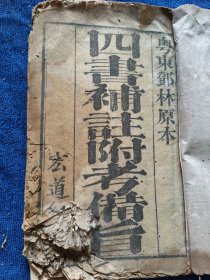 粵東鄧林原本
四書補註附考備旨
宏道